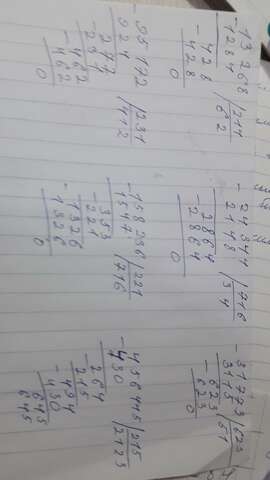 - 13 268 | 214
1284 | 62
- 428
428
0
- 24 344 | 716
2148 | 34
- 2864
2864
0
- 31 773 | 623
3115 | 51
- 623
623
0
- 95 172 | 231
924 | 412
- 277
231
- 462
462
0
- 158 236 | 221
1547 | 716
- 353
221
- 1326
1326
0
- 456 445 | 215
430 | 2123
- 264
215
- 494
430
- 645
645